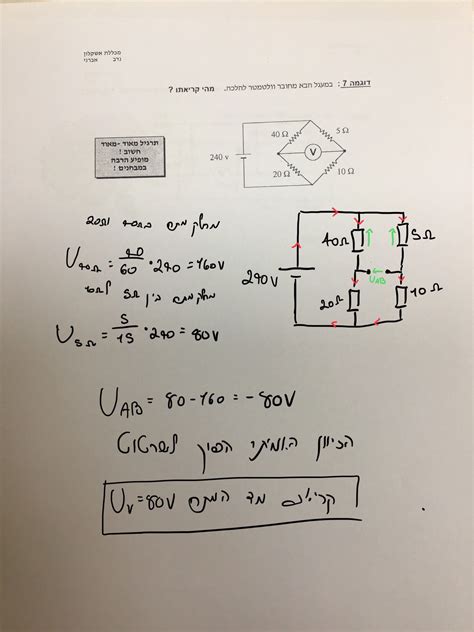 מכללת אשקלון
נדב אברני
דוגמה 7 : במעגל הבא מחובר וולטמטר לחלכה. מהי קריאתו ?
תרגיל מאוד-מאוד
חשוב !
מופיע הרבה
במבחנים !
240 v
40 Ω
5 Ω
V
20 Ω
10 Ω
מחלק מתח
U40Ω = 40/60 · 240 = 160V
מחלק מתח בין 5Ω ל 10Ω
U5Ω = 5/15 · 240 = 80V
240V
40Ω
5Ω
UAB
20Ω
10Ω
UAB = 80 - 160 = -80V
הכיוון האמיתי הפוך לשרטוט
קריאת מד המתח UV = 80V